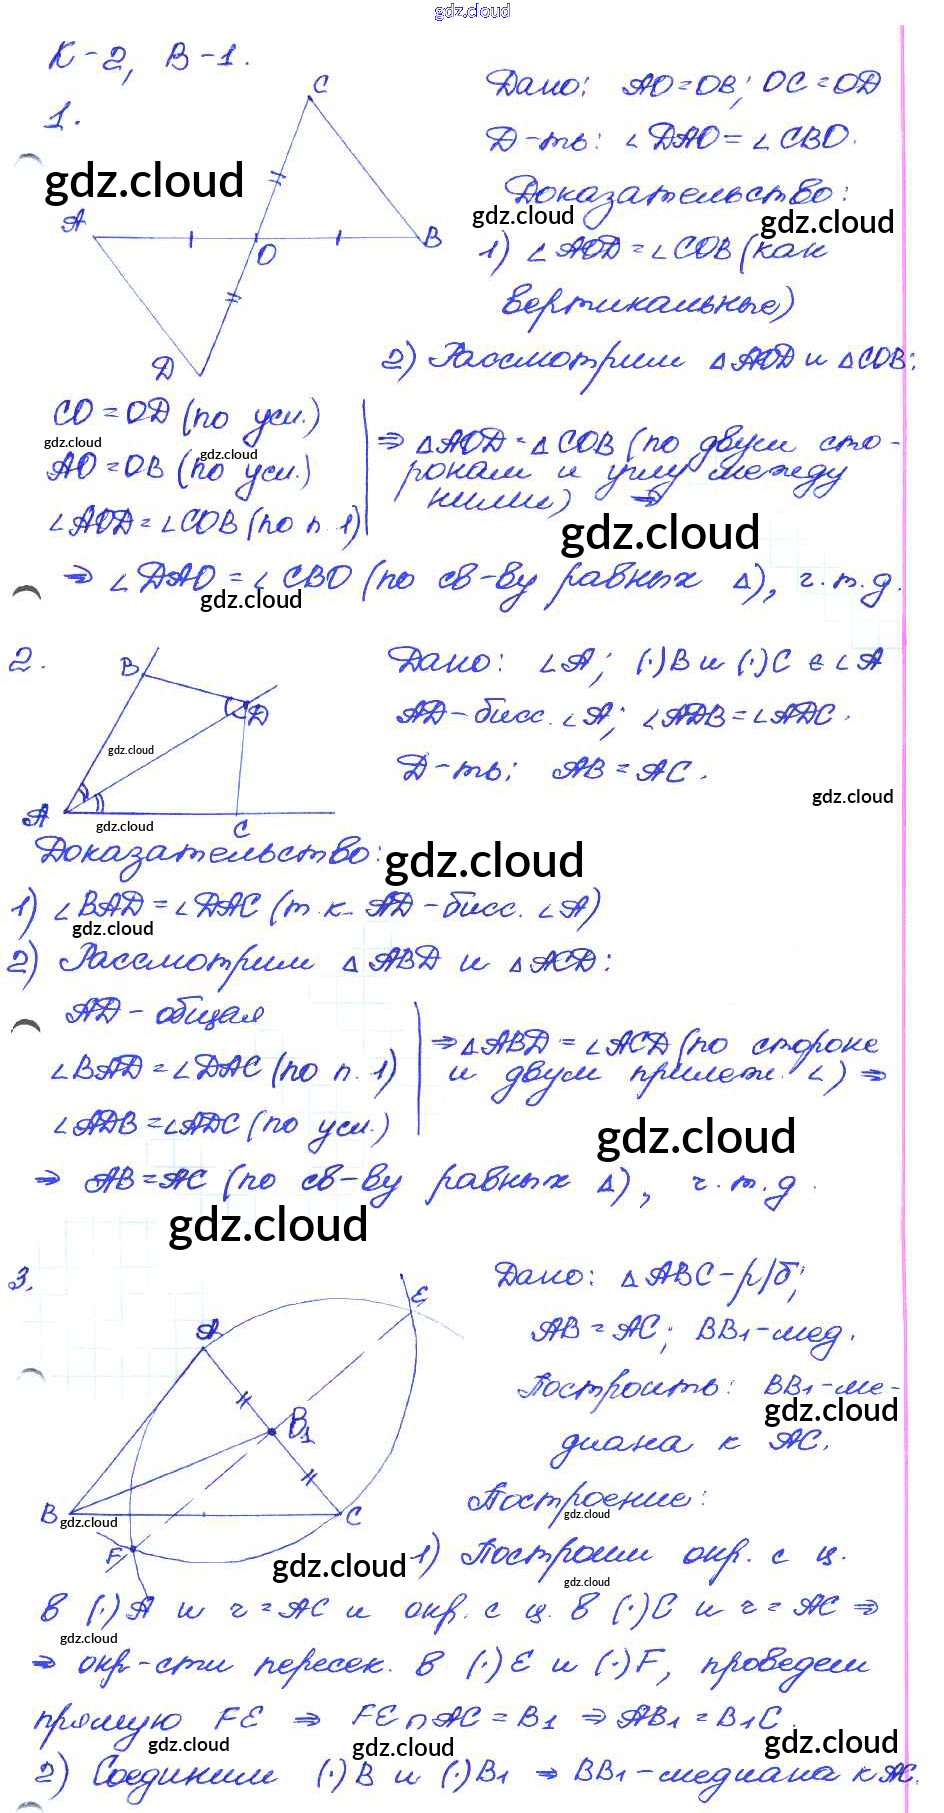 gdz.cloud
К-2, В-1.
1.
C
A
B
O
D
Дано: AO=OB; OC=OD
Д-ть: ∠DAO=∠CBO.
Доказательство:
1) ∠AOD=∠COB (как
вертикальные)
2) Рассмотрим △AOD и △COB:
CO=OD (по усл.)
AO=OB (по усл.)
∠AOD=∠COB (по п. 1)
⇒ △AOD=△COB (по двум сто-
ронам и углу между
ними) ⇒
⇒ ∠DAO=∠CBO (по св-ву равных △), ч.т.д.
gdz.cloud
gdz.cloud
gdz.cloud
gdz.cloud
gdz.cloud
gdz.cloud
gdz.cloud
2.
B
D
A
C
Дано: ∠A; (·)B и (·)C ∈ ∠A
AD-бисс. ∠A; ∠ADB=∠ADC.
Д-ть: AB=AC.
Доказательство:
1) ∠BAD=∠DAC (т.к. AD-бисс. ∠A)
2) Рассмотрим △ABD и △ACD:
AD-общая
∠BAD=∠DAC (по п. 1)
∠ADB=∠ADC (по усл.)
⇒ △ABD=∠ACD (по стороне
и двум прилеж. ∠) ⇒
⇒ AB=AC (по св-ву равных △), ч.т.д.
gdz.cloud
gdz.cloud
gdz.cloud
gdz.cloud
gdz.cloud
gdz.cloud
gdz.cloud
3.
A
E
B1
B
C
F
Дано: △ABC-р/б;
AB=AC; BB1-мед.
Построить: BB1-ме-
диана к AC.
Построение:
1) Построим окр. с ц.
в (·)A и r=AC и окр. с ц. в (·)C и r=AC ⇒
⇒ окр-сти пересек. в (·)E и (·)F, проведем
прямую FE ⇒ FE∩AC=B1 ⇒ AB1=B1C.
2) Соединим (·)B и (·)B1 ⇒ BB1-медиана к AC.
gdz.cloud
gdz.cloud
gdz.cloud
gdz.cloud
gdz.cloud
gdz.cloud
gdz.cloud
gdz.cloud
gdz.cloud